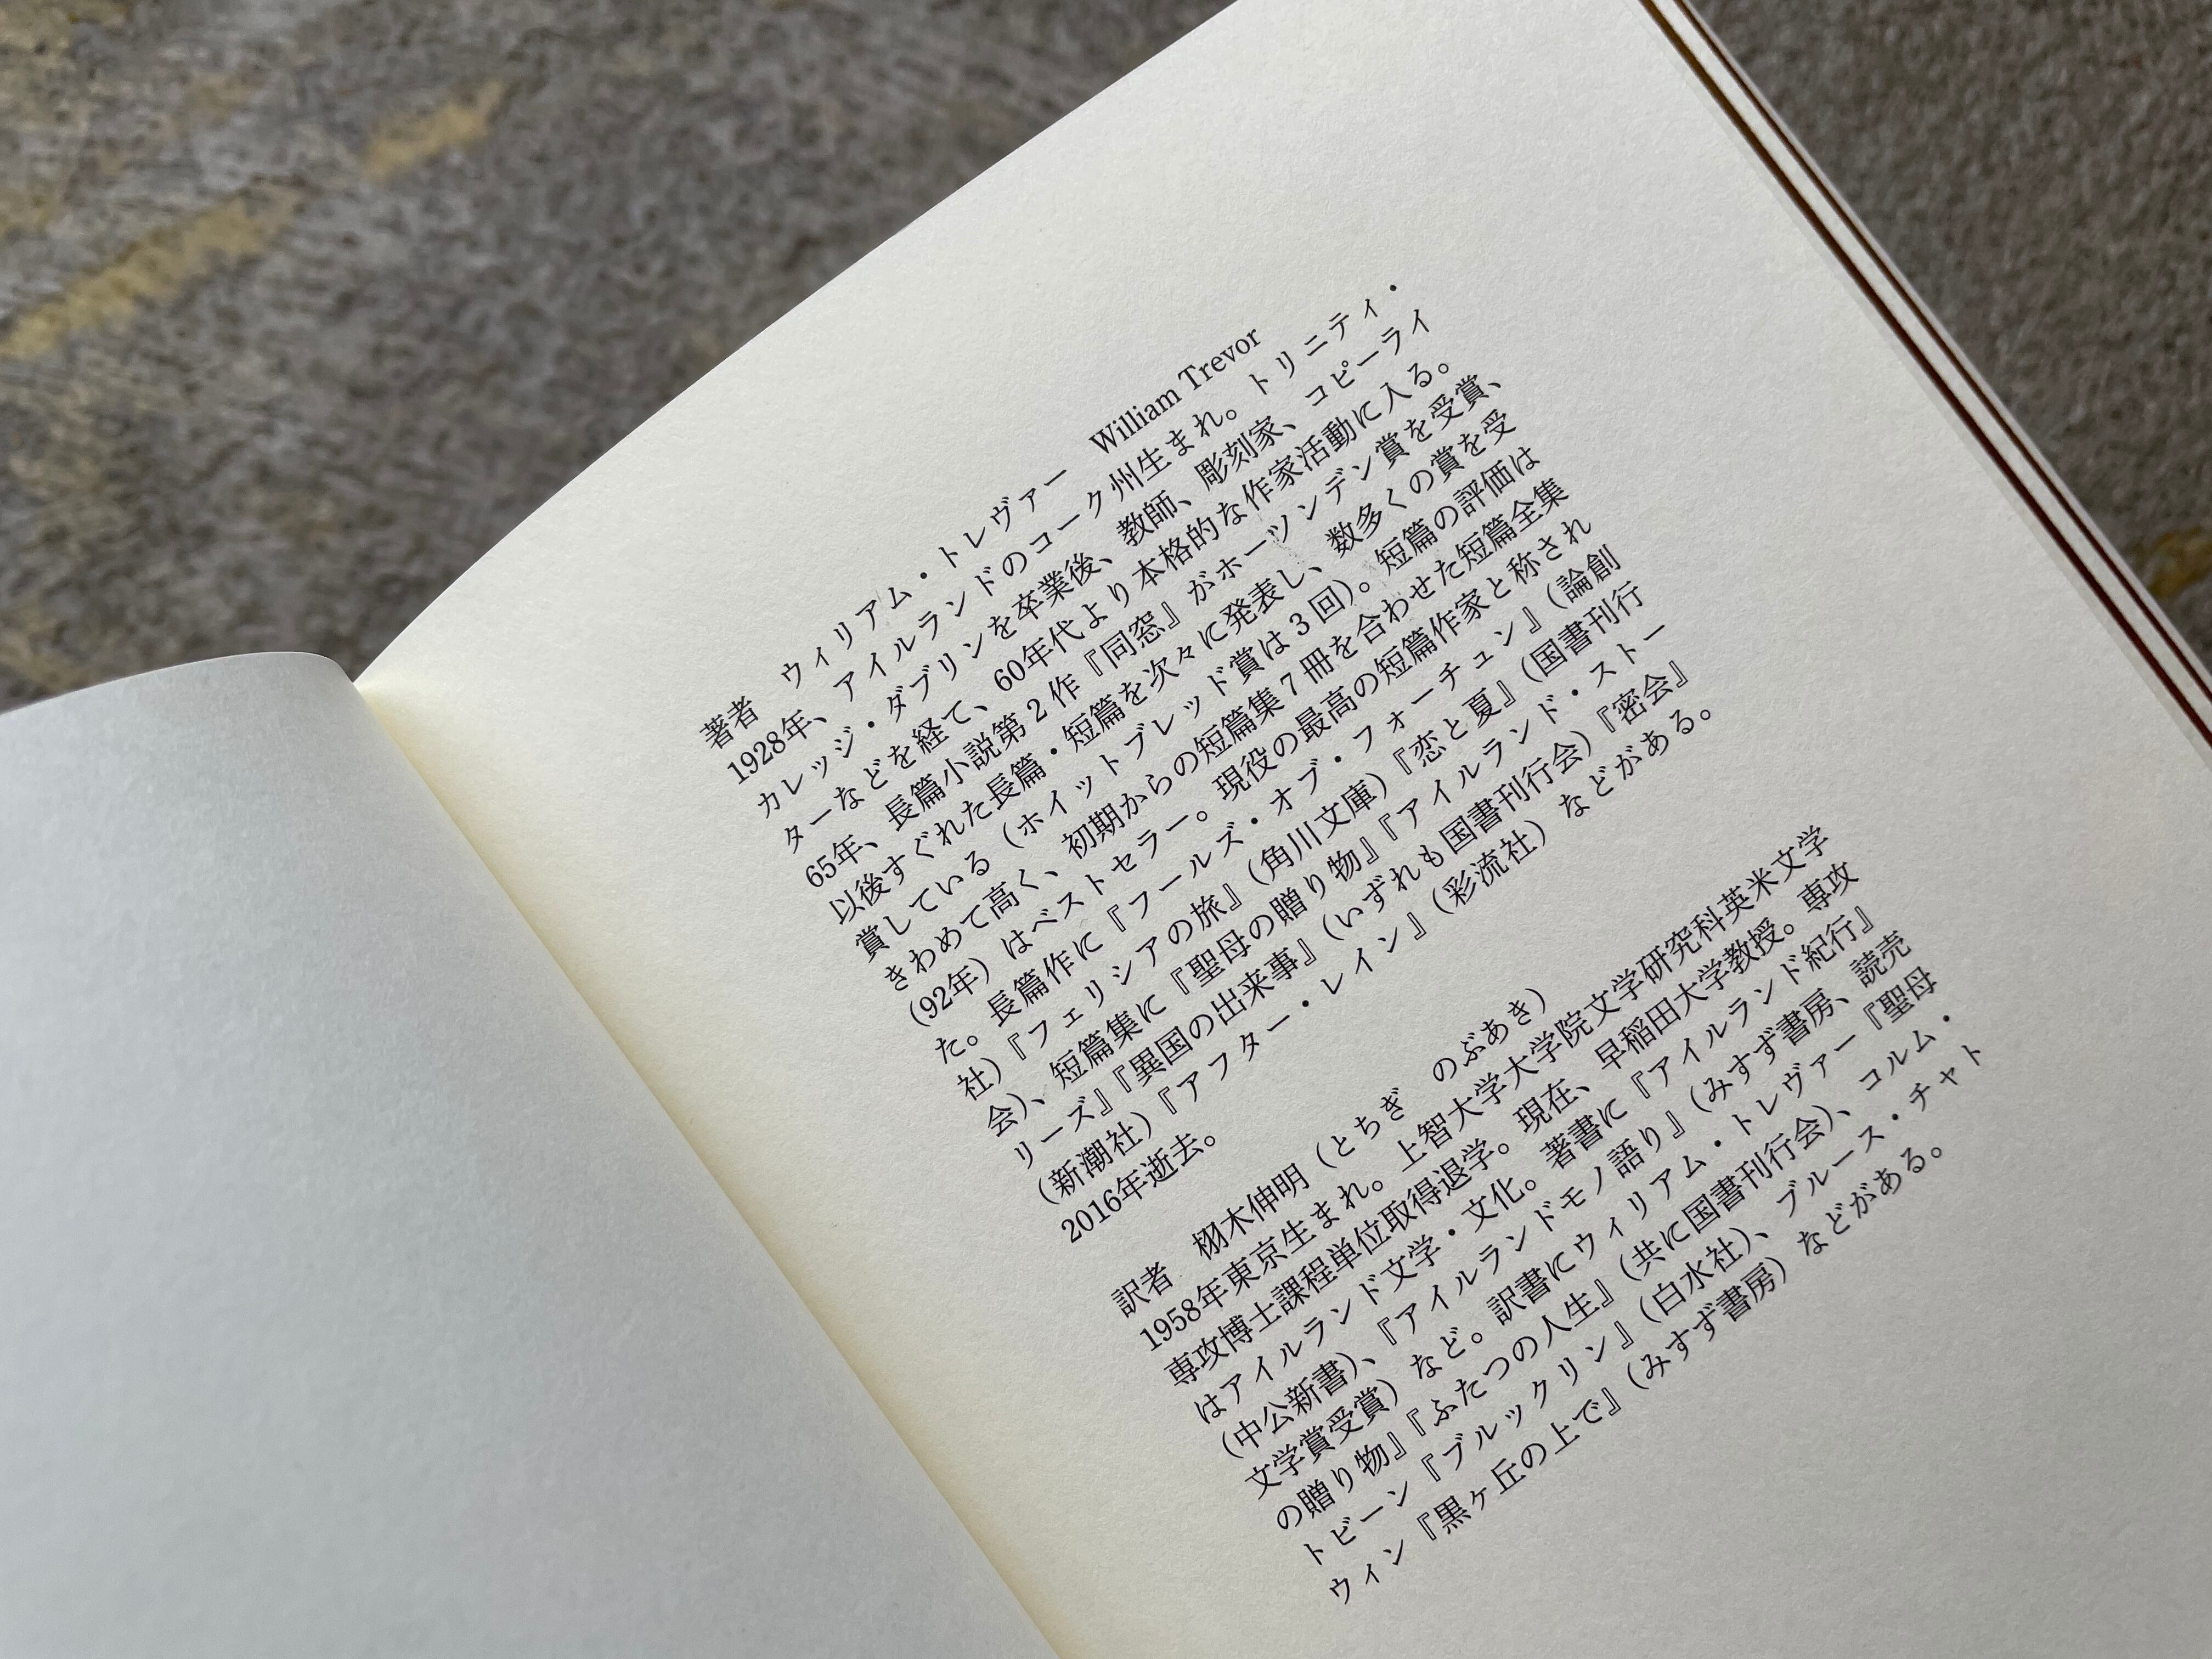 著者　ウィリアム・トレヴァー　William Trevor
1928年、アイルランドのコーク州生まれ。トリニティ・
カレッジ・ダブリンを卒業後、教師、彫刻家、コピーライ
ターなどを経て、60年代より本格的な作家活動に入る。
65年、長篇小説第2作『同窓』がホーソンデン賞を受賞、
以後すぐれた長篇・短篇を次々に発表し、数多くの賞を受
賞している（ホイットブレッド賞は3回）。短篇の評価は
きわめて高く、初期からの短篇集7冊を合わせた短篇全集
（92年）はベストセラー。現役の最高の短篇作家と称され
た。長篇作に『フールズ・オブ・フォーチュン』（論創
社）『フェリシアの旅』（角川文庫）『恋と夏』（国書刊行
会）、短篇集に『聖母の贈り物』『アイルランド・ストー
リーズ』『異国の出来事』（いずれも国書刊行会）『密会』
（新潮社）『アフター・レイン』（彩流社）などがある。
2016年逝去。
訳者　栩木伸明（とちぎ　のぶあき）
1958年東京生まれ。上智大学大学院文学研究科英米文学
専攻博士課程単位取得退学。現在、早稲田大学教授。専攻
はアイルランド文学・文化。著書に『アイルランド紀行』
（中公新書）、『アイルランドモノ語り』（みすず書房、読売
文学賞受賞）など。訳書にウィリアム・トレヴァー『聖母
の贈り物』『ふたつの人生』（共に国書刊行会）、コルム・
トビーン『ブルックリン』（白水社）、ブルース・チャト
ウィン『黒ヶ丘の上で』（みすず書房）などがある。